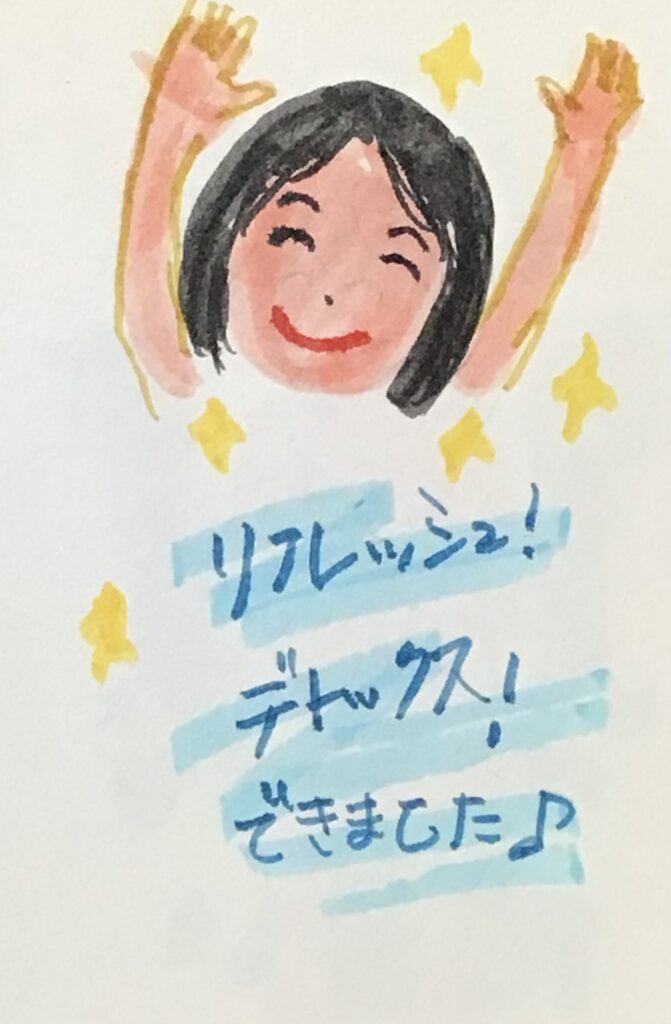 リフレッシュ!
デトックス!
できました♪